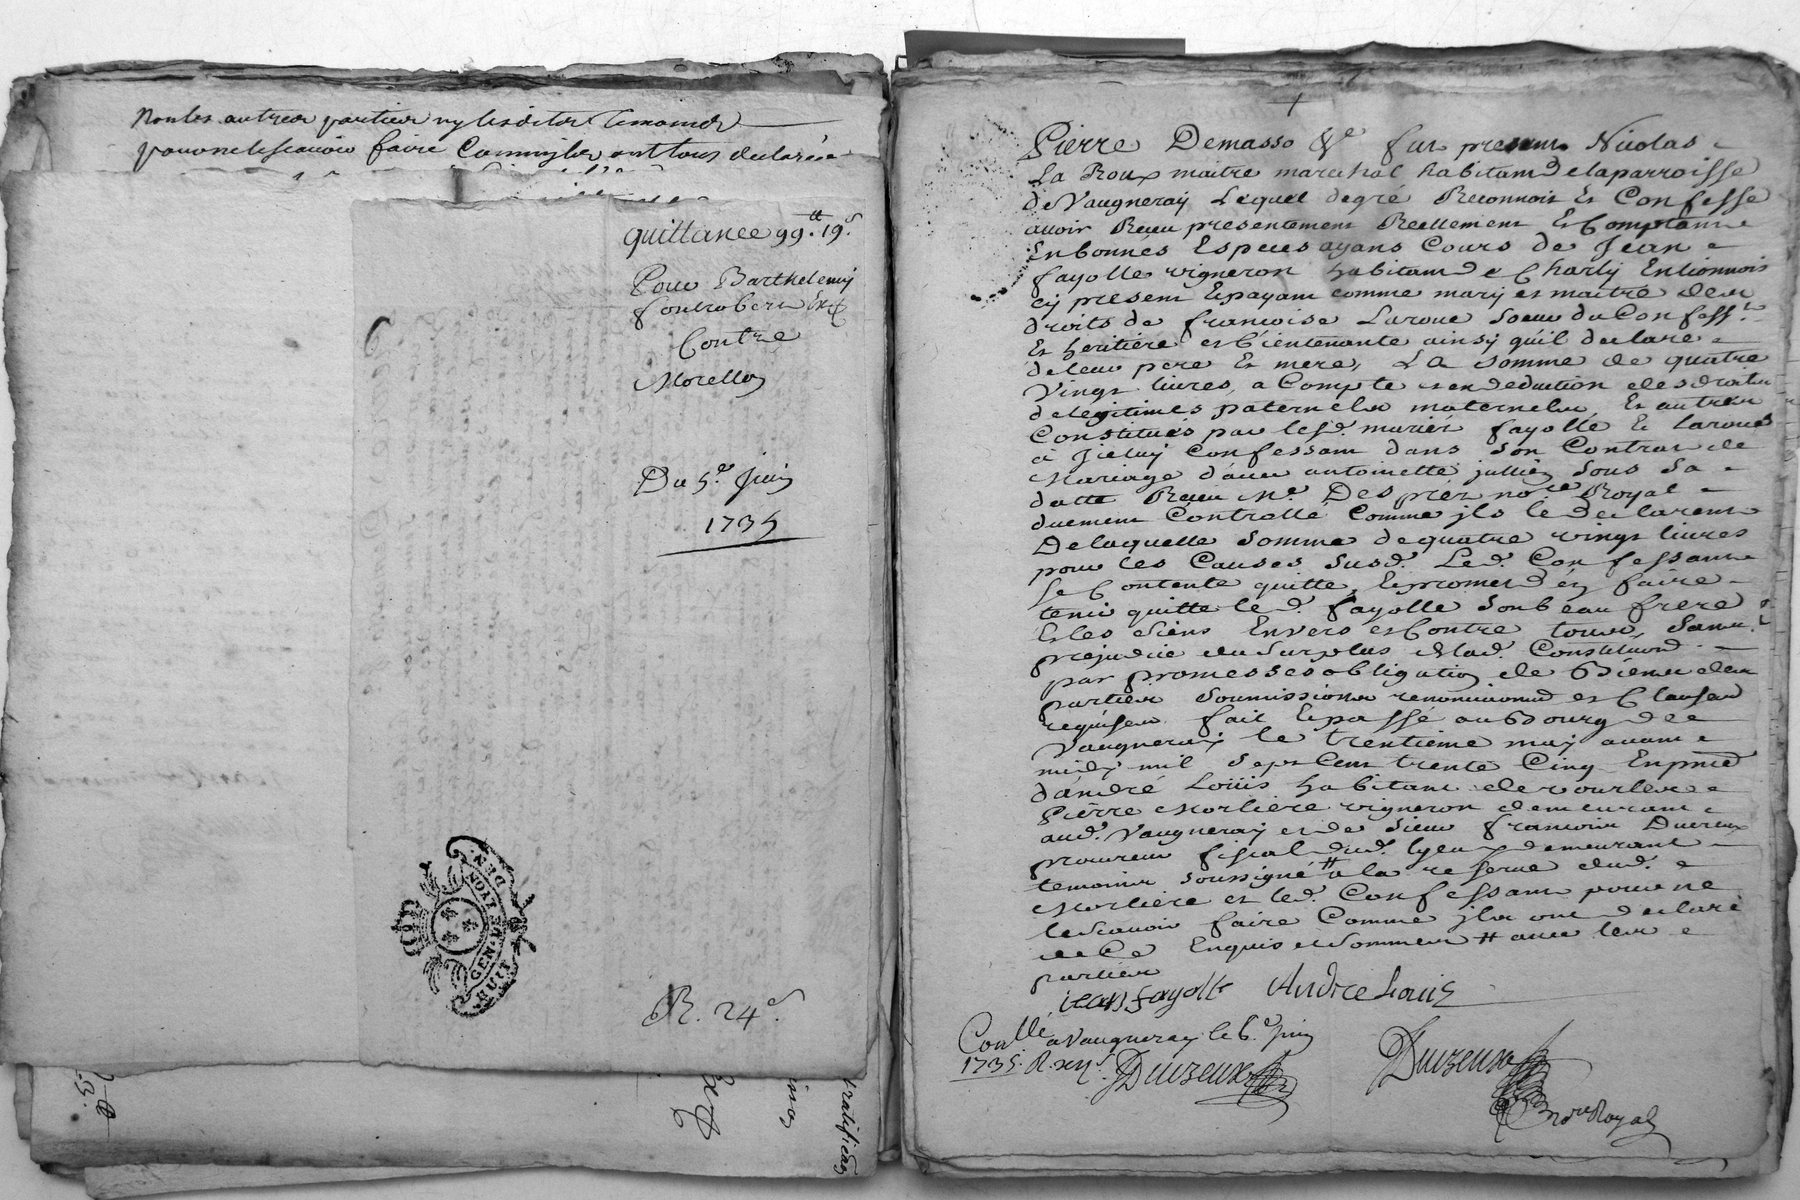 Non les autres parties ny lesdits temoins
pour ne le scavoir faire
quittance 99.tt 19.s
Pour Barthelemy
Contre
Morellon
Du 5.e Juin
1735
GEN. DE LYON.
HUIT DEN.
R. 24.s
ratification
Pierre Demasso &c fut present Nicolas
La Roux maitre marechal habitant de la parroisse
de Vaugneray Lequel de gré Reconnoit Et Confesse
avoir Receu presentement Reellement Et Comptant
En bonnes Especes ayans Cours de Jean
fayolle vigneron habitant de Charly En lionnois
cy present Et payant comme mary et maitre des
droits de francoise Laroue soeur du Confess.t
Et heritiere et bientenante ainsy qu'il declare
de leur pere Et mere, La somme de quatre
Vingt livres, a Compte et en deduction des droits
de legitimes paternels maternels, Et autres
Constitués par les d. mariés fayolle Et Laroue
à Jceluy Confessant dans son Contrat de
Mariage d'avec antoinette jullien sous sa
datte Receu M.e Desprez no.re Royal
duement Controllé Comme jls le declarent
De laquelle somme de quatre vingt livres
pour les Causes susd. Le d. Confessant
se Contente quitte, Et promet d'en faire
tenir quitte le d. fayolle son beau frere
Et les siens Envers et Contre tous, Sans
prejudice du surplus de lad. Constitution
par promesses obligation de Biens des
parties soumissions renonciations et Clauses
requises fait Et passé au Bourg de
Vaugneray le trentieme may avant
midy mil sept Cent trente Cinq En pnce
d'andré Loüis habitant de
Pierre Morliere vigneron demeurant
aud. Vaugneray et de Sieur francois
procureur fiscal dud. lyeu y demeurant
temoins soussigné # a la reserve dud.
Morliere et led. Confessant pour ne
le scavoir faire Comme jls ont declaré
de Ce Enquis et sommés # avec les
parties
jean fayolle Andre Louis
Con.llé a Vaugneray le 6.e Juin
1735. R. xij s. Duvzeux
Duvzeux
no.re Royal